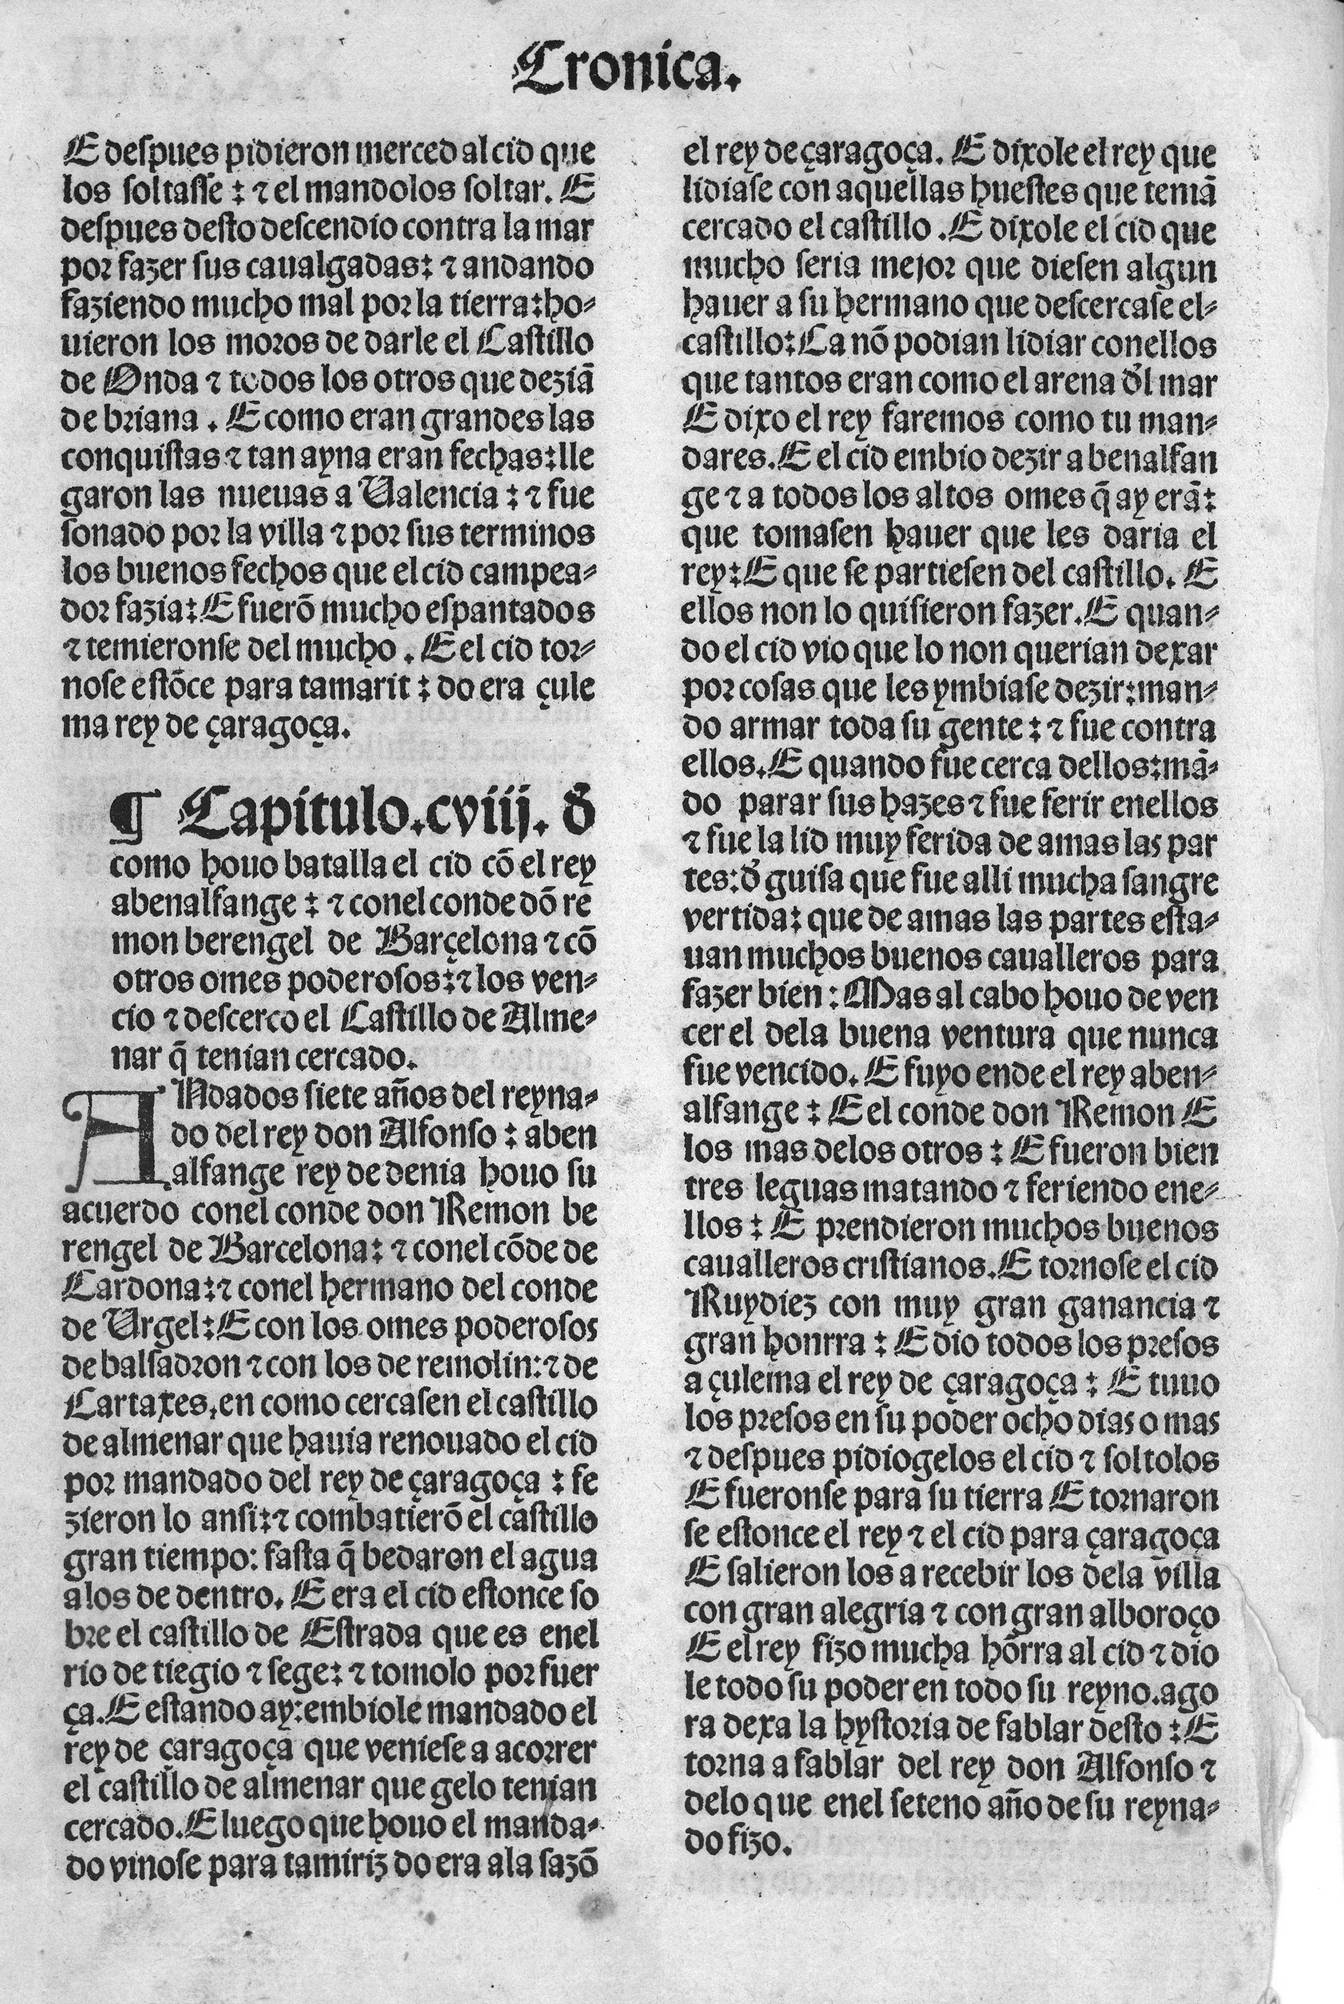 Cronica.
E despues pidieron merced al cid que
los soltasse : ⁊ el mandolos soltar. E
despues desto descendio contra la mar
por fazer sus caualgadas: ⁊ andando
faziendo mucho mal por la tierra:ho-
uieron los moros de darle el Castillo
de Onda ⁊ todos los otros que deziã
de briana . E como eran grandes las
conquistas ⁊ tan ayna eran fechas:lle
garon las nueuas a Ualencia : ⁊ fue
sonado por la villa ⁊ por sus terminos
los buenos fechos que el cid campea-
dor fazia: E fuerõ mucho espantados
⁊ temieronse del mucho . E el cid tor-
nose estõce para tamarit : do era çule
ma rey de çaragoça.
¶ Capitulo.cviij. đ
como houo batalla el cid cõ el rey
abenalfange : ⁊ conel conde dõ re
mon berengel de Barçelona ⁊ cõ
otros omes poderosos:⁊ los ven-
cio ⁊ descerco el Castillo de Alme-
nar q̃ tenian cercado.
ANdados siete años del reyna-
do del rey don Alfonso : aben
alfange rey de denia houo su
acuerdo conel conde don Remon be
rengel de Barcelona: ⁊ conel cõde de
Cardona:⁊ conel hermano del conde
de Urgel: E con los omes poderosos
de balsadron ⁊ con los de remolin:⁊ de
Cartaxes.en como cercasen el castillo
de almenar que hauia renouado el cid
por mandado del rey de çaragoça : fe
zieron lo ansi:⁊ combatierõ el castillo
gran tiempo: fasta q̃ bedaron el agua
alos de dentro. E era el cid estonce so
bre el castillo de Estrada que es enel
rio de tiegio ⁊ sege: ⁊ tomolo por fuer
ça. E estando ay:embiole mandado el
rey de çaragoça que veniese a acorrer
el castillo de almenar que gelo tenian
cercado. E luego que houo el manda-
do vinose para tamiriz do era ala sazõ
el rey de çaragoça. E dixole el rey que
lidiase con aquellas huestes que teniã
cercado el castillo . E dixole el cid que
mucho seria mejor que diesen algun
hauer a su hermano que descercase el-
castillo: Ca nõ podian lidiar conellos
que tantos eran como el arena đl mar
E dixo el rey faremos como tu man-
dares. E el cid embio dezir a benalfan
ge ⁊ a todos los altos omes q̃ ay erã:
que tomasen hauer que les daria el
rey: E que se partiesen del castillo. E
ellos non lo quisieron fazer. E quan-
do el cid vio que lo non querian dexar
por cosas que les ymbiase dezir:man-
do armar toda su gente : ⁊ fue contra
ellos. E quando fue cerca dellos:mã-
do parar sus hazes ⁊ fue ferir enellos
⁊ fue la lid muy ferida de amas las par
tes:đ guisa que fue alli mucha sangre
vertida: que de amas las partes esta-
uan muchos buenos caualleros para
fazer bien : Mas al cabo houo de ven
cer el dela buena ventura que nunca
fue vencido. E fuyo ende el rey aben-
alfange : E el conde don Remon E
los mas delos otros : E fueron bien
tres leguas matando ⁊ feriendo ene-
llos : E prendieron muchos buenos
caualleros cristianos. E tornose el cid
Ruydiez con muy gran ganancia ⁊
gran honrra : E dio todos los presos
a çulema el rey de çaragoça : E tuuo
los presos en su poder ocho dias o mas
⁊ despues pidiogelos el cid ⁊ soltolos
E fueronse para su tierra E tornaron
se estonce el rey ⁊ el cid para çaragoça
E salieron los a recebir los dela villa
con gran alegria ⁊ con gran alboroço
E el rey fizo mucha hõrra al cid ⁊ dio
le todo su poder en todo su reyno.ago
ra dexa la hystoria de fablar desto : E
torna a fablar del rey don Alfonso ⁊
delo que enel seteno año de su reyna-
do fizo.